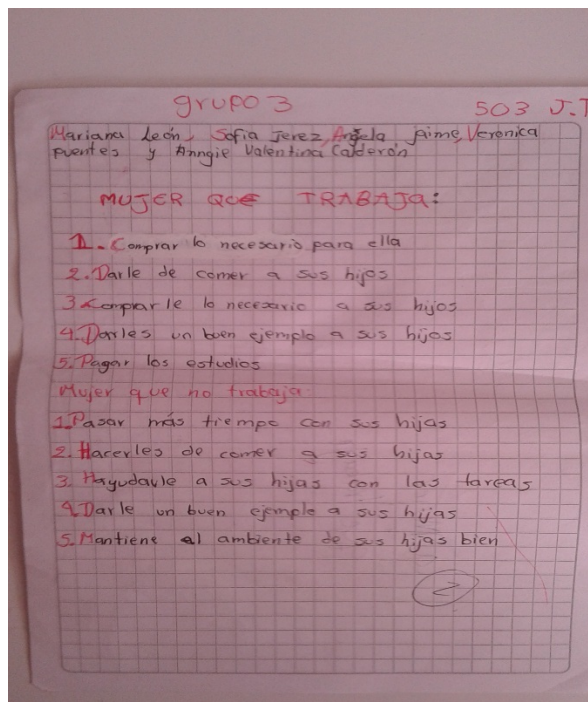 grupo 3
503 J.T
Mariana León, Sofia Jerez, Angela jaime, Veronica
puentes y Anngie Valentina Calderón
MUJER QUE TRABAJA:
1. Comprar lo necesario para ella
2. Darle de comer a sus hijos
3 Comprarle lo necesario a sus hijos
4. Darles un buen ejemplo a sus hijos
5. Pagar los estudios
Mujer que no trabaja
1. Pasar más tiempo con sus hijas
2. Hacerles de comer a sus hijas
3. Hayudarle a sus hijas con las tareas
4. Darle un buen ejemplo a sus hijas
5. Mantiene al ambiente de sus hijas bien
2